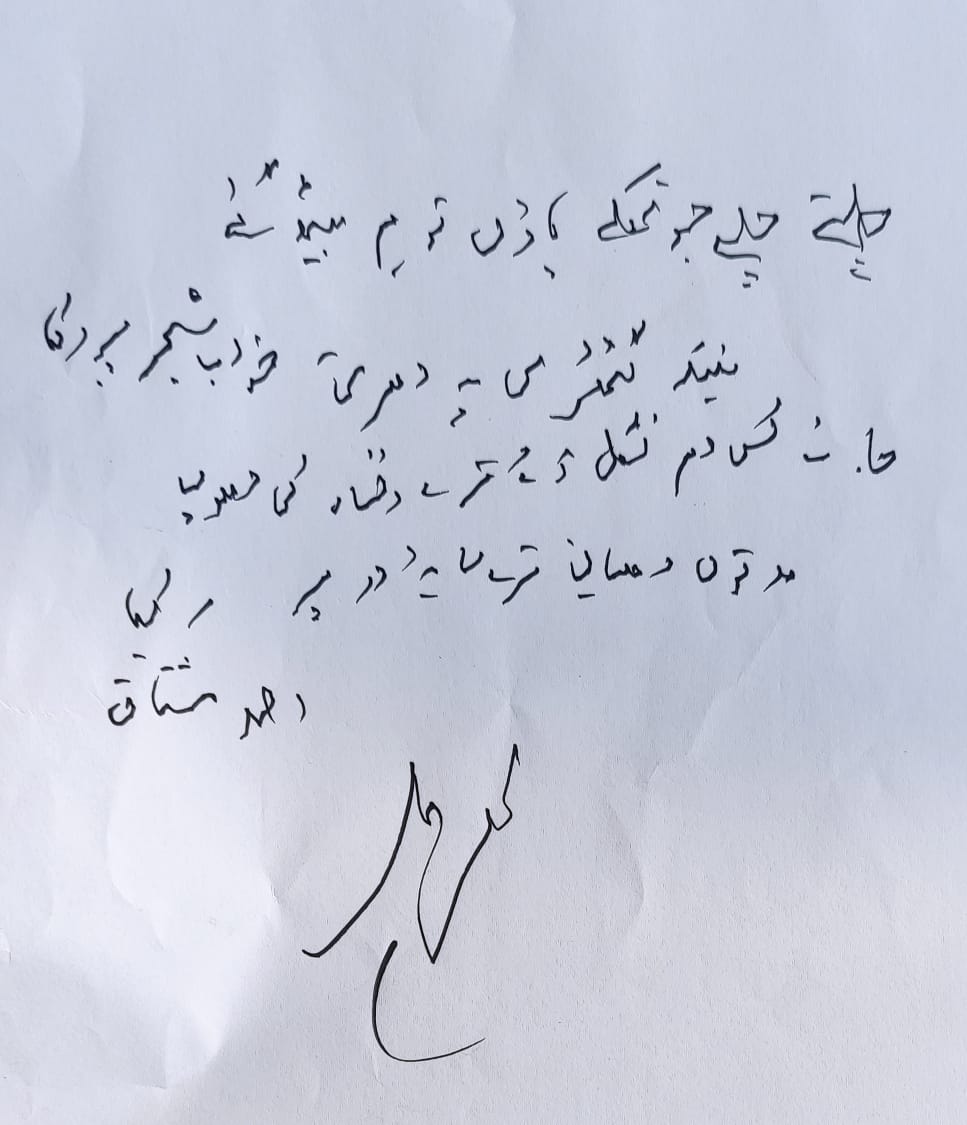 چلتے چلتے جو تھکے پاؤں تو ہم بیٹھ گئے
نیند گٹھڑی میں دھری خواب شجر پر رکھا
جانے کس دم نکل آئے ترے رخسار کی دھوپ
مدتوں دھیان ترے سایۂ در پر رکھا
احمد مشتاق